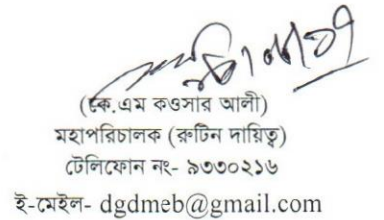 (কে.এম কওসার আলী)
মহাপরিচালক (রুটিন দায়িত্ব)
টেলিফোন নং- ৯৩৩০২১৬
ই-মেইল- dgdmeb@gmail.com